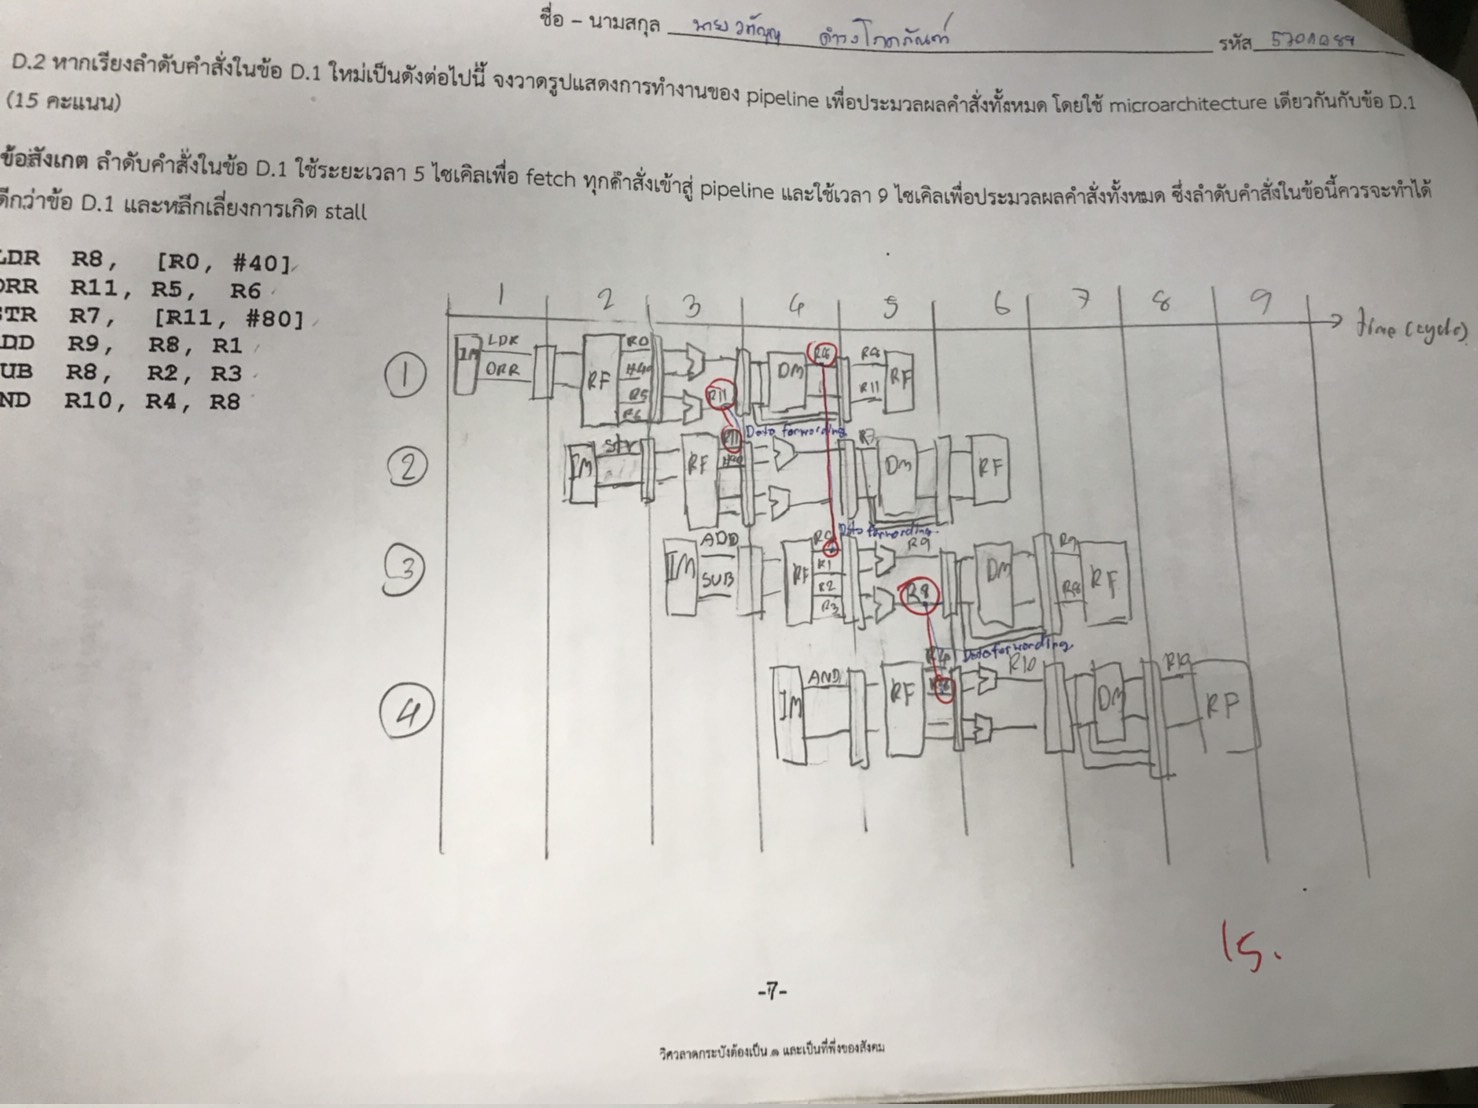 ชื่อ – นามสกุล นาย
รหัส
D.2 หากเรียงลำดับคำสั่งในข้อ D.1 ใหม่เป็นดังต่อไปนี้ จงวาดรูปแสดงการทำงานของ pipeline เพื่อประมวลผลคำสั่งทั้งหมด โดยใช้ microarchitecture เดียวกันกับข้อ D.1
(15 คะแนน)
ข้อสังเกต ลำดับคำสั่งในข้อ D.1 ใช้ระยะเวลา 5 ไซเคิลเพื่อ fetch ทุกคำสั่งเข้าสู่ pipeline และใช้เวลา 9 ไซเคิลเพื่อประมวลผลคำสั่งทั้งหมด ซึ่งลำดับคำสั่งในข้อนี้ควรจะทำได้
ดีกว่าข้อ D.1 และหลีกเลี่ยงการเกิด stall
LDR R8, [R0, #40]
ORR R11, R5, R6
STR R7, [R11, #80]
DD R9, R8, R1
UB R8, R2, R3
ND R10, R4, R8
1 2 3 4 5 6 7 8 9 time (cycle)
1 IM LDR ORR RF R0 #40 R5 R6 R11 DM R8 R8 R11 RF
Data forwarding
2 IM STR RF R11 #80 R7 DM RF
Data forwarding
3 IM ADD SUB RF R8 R1 R2 R3 R9 R8 DM R9 R8 RF
Data forwarding
4 IM AND RF R4 R8 R10 DM R10 RF
15.
-7-
วิศวลาดกระบังต้องเป็น ๑ และเป็นที่พึ่งของสังคม